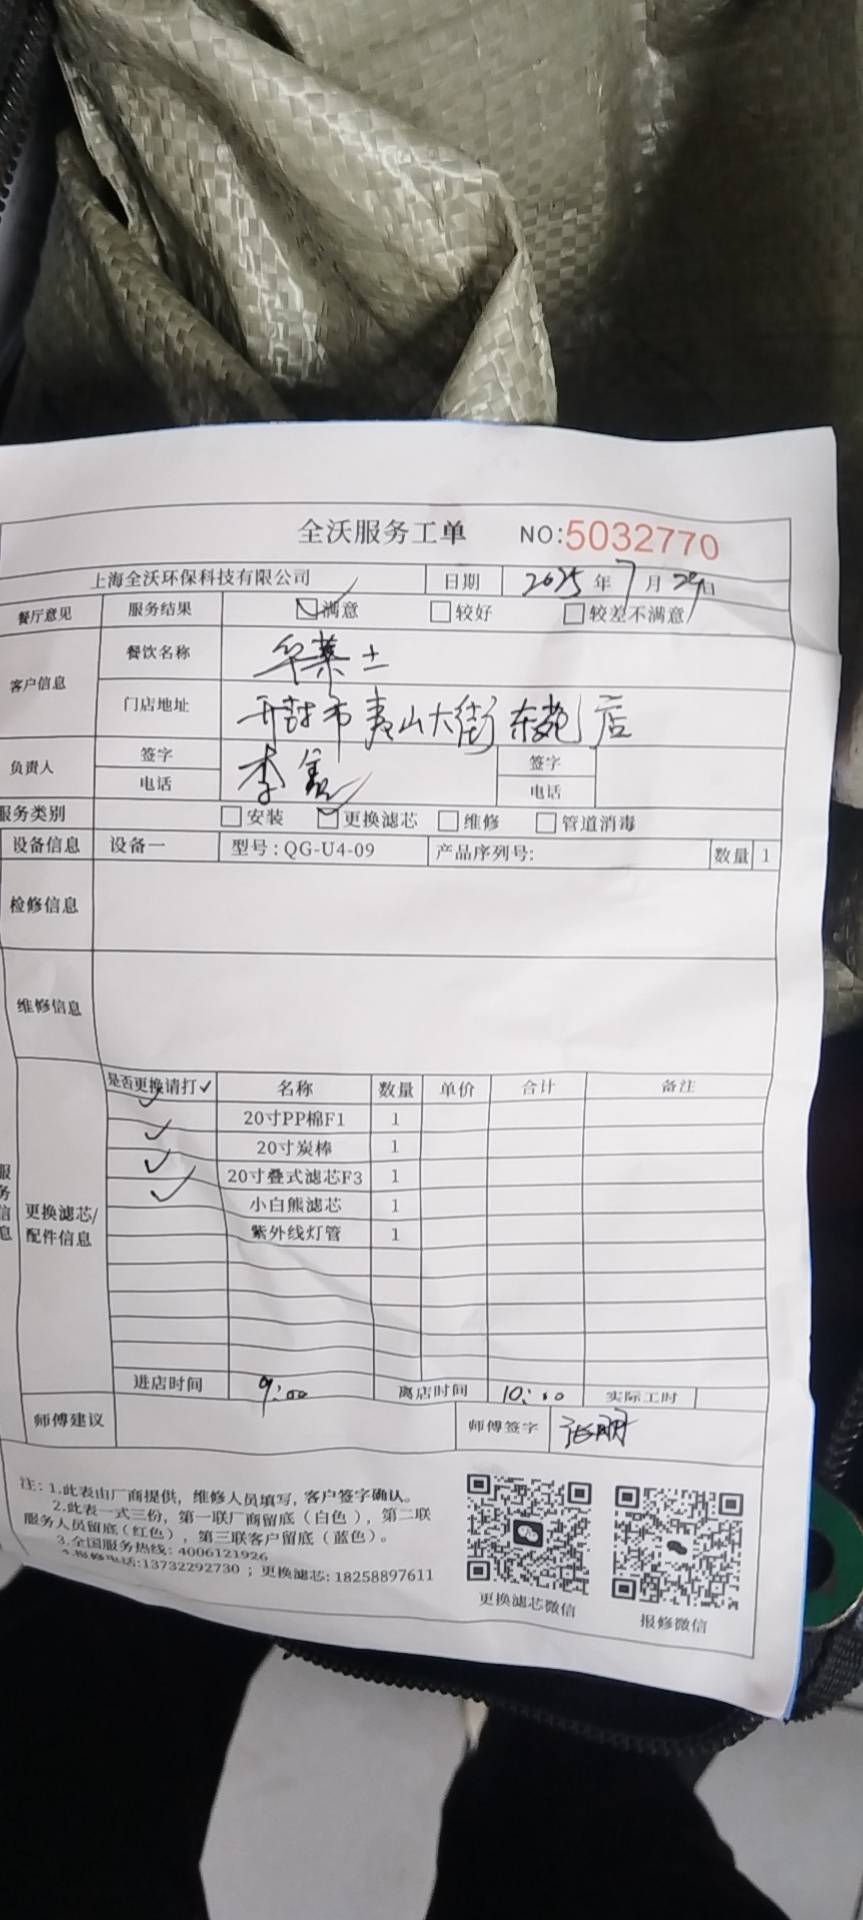 全沃服务工单 NO:5032770
上海全沃环保科技有限公司 日期 2025年7月29日
餐厅意见 服务结果 满意 较好 较差不满意
客户信息 餐饮名称 华莱士
门店地址 开封市夷山大街东苑店
负责人 签字 李鑫 签字
电话 电话
服务类别 安装 更换滤芯 维修 管道消毒
设备信息 设备一 型号：QG-U4-09 产品序列号: 数量 1
检修信息
维修信息
服务信息 更换滤芯/配件信息
是否更换请打✓ 名称 数量 单价 合计 备注
✓ 20寸PP棉F1 1
✓ 20寸炭棒 1
✓ 20寸叠式滤芯F3 1
✓ 小白熊滤芯 1
紫外线灯管 1
进店时间 9:00 离店时间 10:00 实际工时
师傅建议 师傅签字 张朋
注：1.此表由厂商提供，维修人员填写，客户签字确认。
2.此表一式三份，第一联厂商留底（白色），第二联
服务人员留底（红色），第三联客户留底（蓝色）。
3.全国服务热线：4006121926
4.报修电话:13732292730；更换滤芯: 18258897611
更换滤芯微信 报修微信